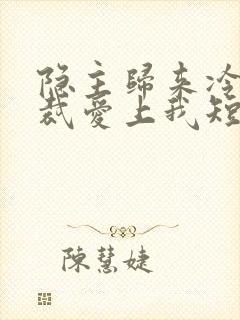 隐主歸来冷
裁愛上我短
陳慧婕